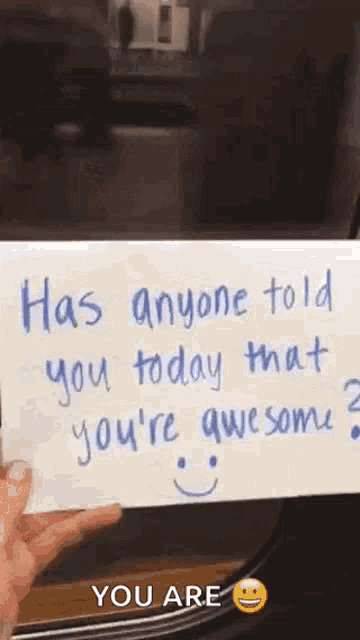 Has anyone told
you today that
you're awesome?
YOU ARE 😀